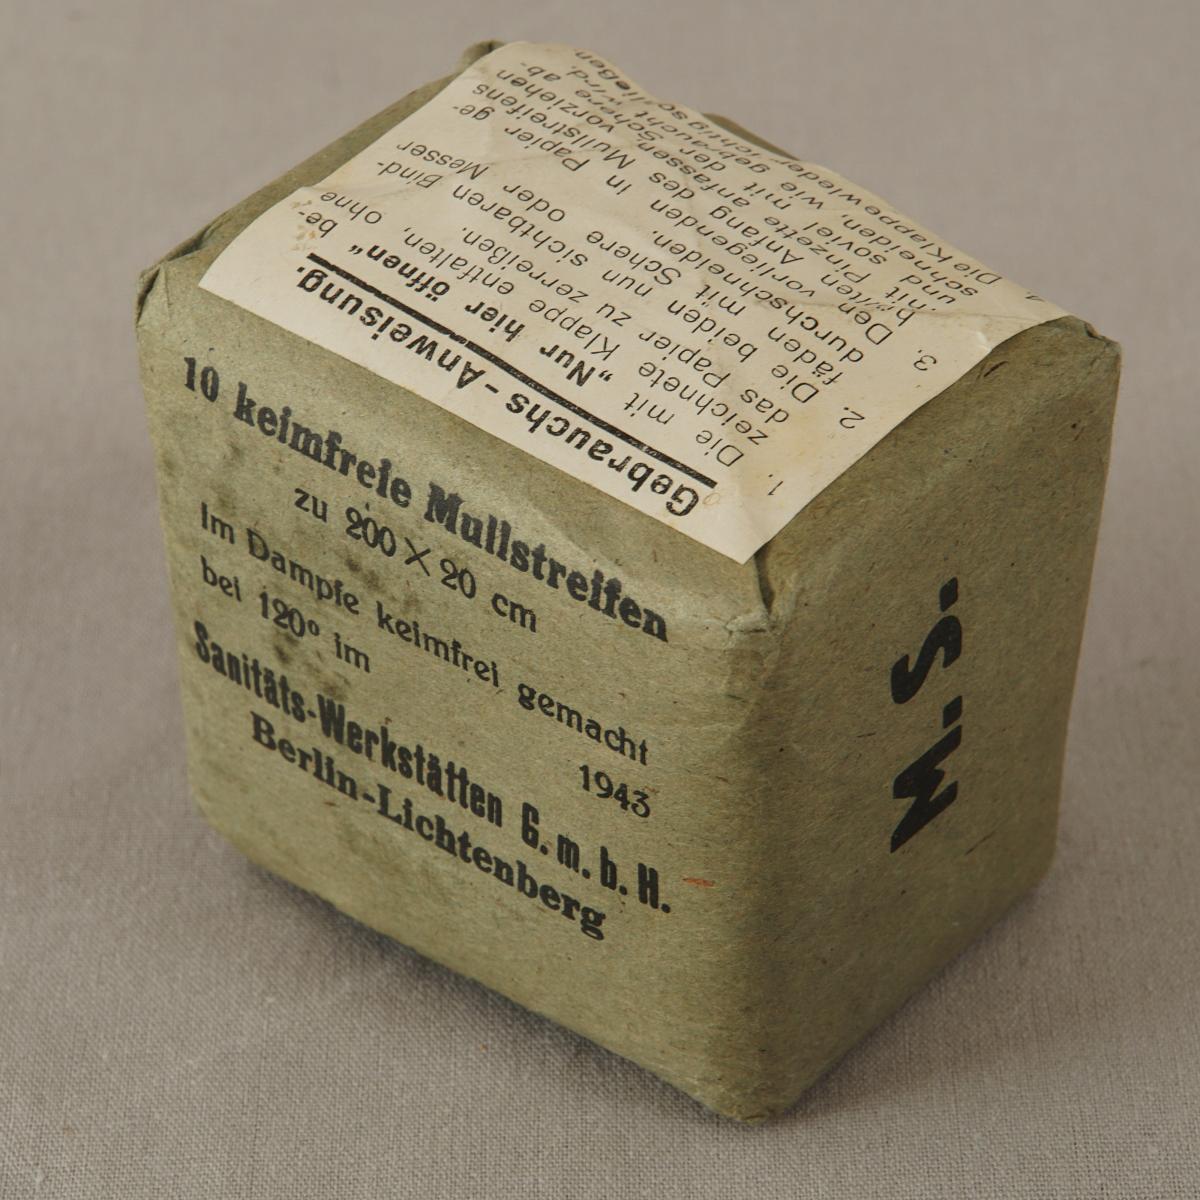 Gebrauchs-Anweisung.
1. Die mit „Nur hier öffnen“ be-
zeichnete Klappe entfalten, ohne
das Papier zu zerreißen.
2. Die beiden nun sichtbaren Bind-
fäden mit Schere oder Messer
durchschneiden.
3. Den vorliegenden in Papier ge-
hüllten Anfang des Mullstreifens
mit Pinzette anfassen, vorziehen
und soviel mit der Schere ab-
schneiden, wie gebraucht wird.
4. Die Klappe wieder schließen.
10 keimfreie Mullstreifen
zu 200 × 20 cm
Im Dampfe keimfrei gemacht
bei 120° im 1943
Sanitäts-Werkstätten G.m.b.H.
Berlin-Lichtenberg
M.S.